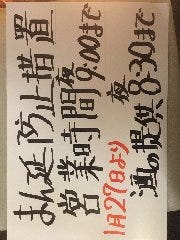 まん延防止措置
営業時間夜9:00まで
1月27日より 夜
酒の提供8:30まで